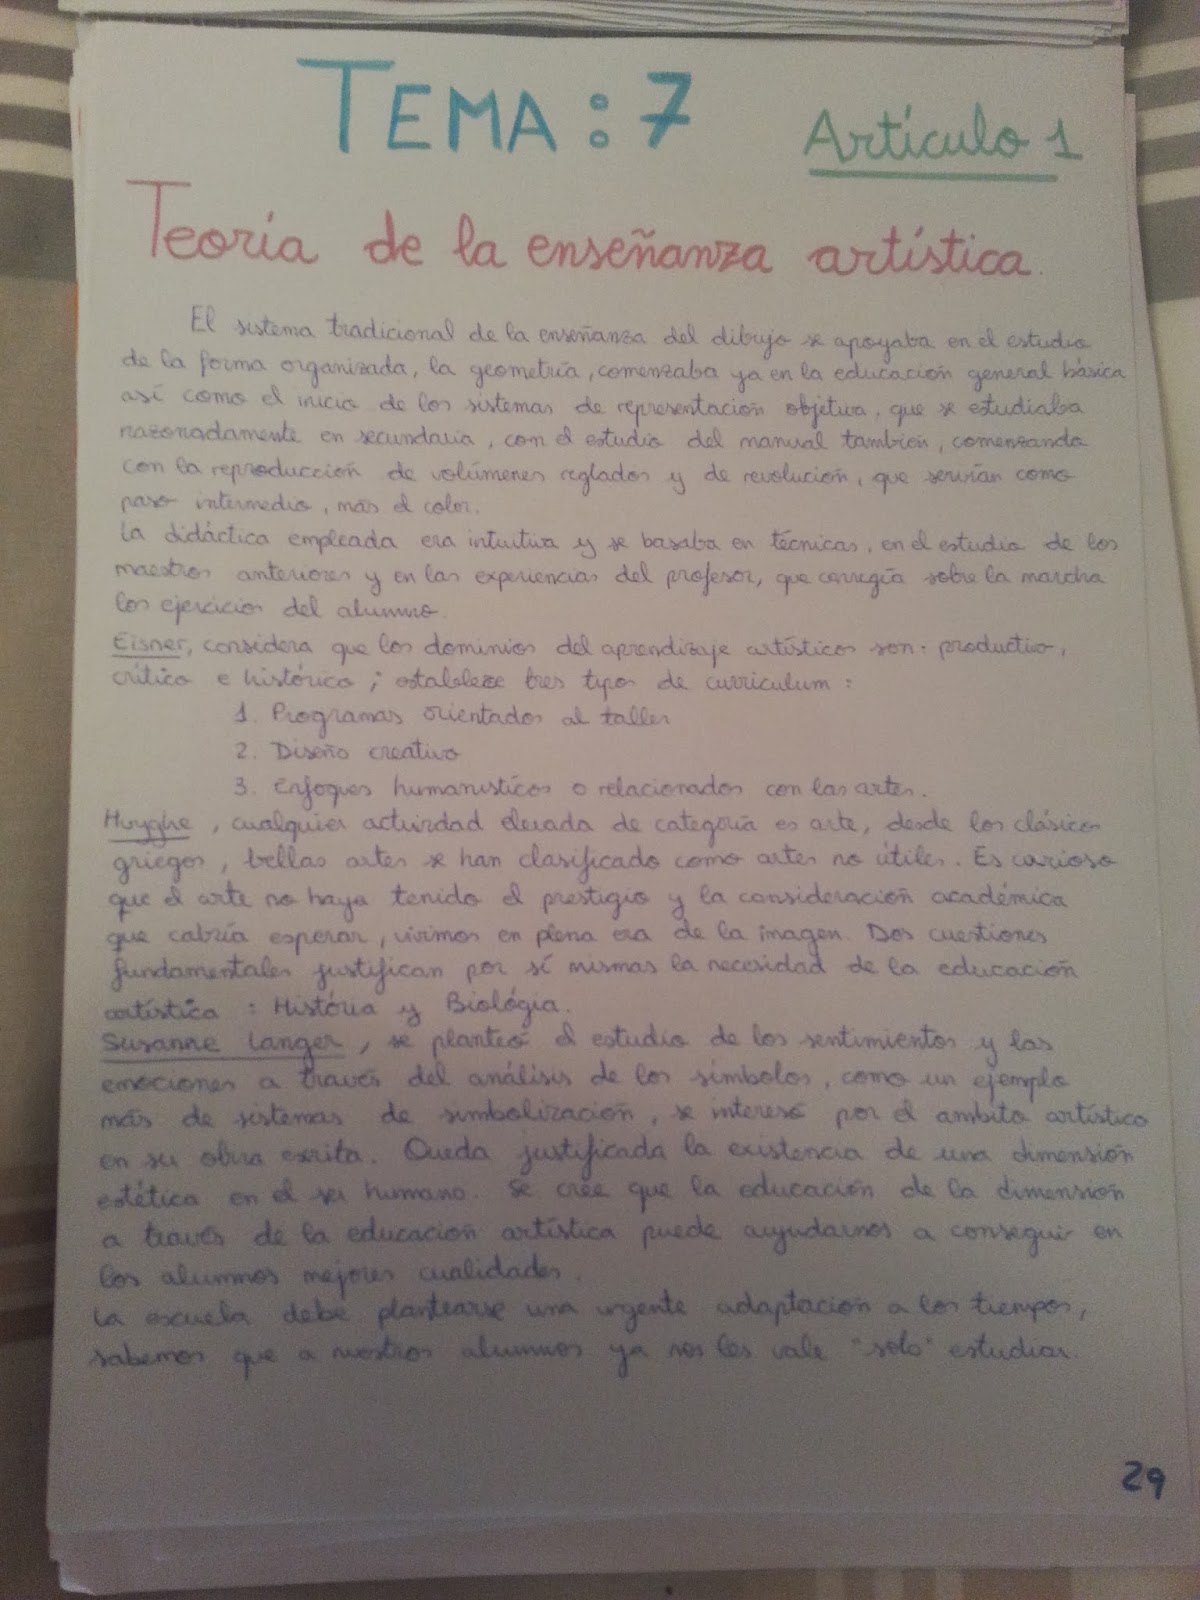 TEMA: 7
Artículo 1
Teoría de la enseñanza artística.
El sistema tradicional de la enseñanza del dibujo se apoyaba en el estudio
de la forma organizada, la geometría, comenzaba ya en la educación general básica
así como el inicio de los sistemas de representación objetiva, que se estudiaba
razonadamente en secundaria, con el estudio del manual también, comenzando
con la reproducción de volúmenes reglados y de revolución, que servían como
paso intermedio, más el color.
La didáctica empleada era intuitiva y se basaba en técnicas, en el estudio de los
maestros anteriores y en las experiencias del profesor, que corregía sobre la marcha
los ejercicios del alumno.
Eisner, considera que los dominios del aprendizaje artísticos son: productivo,
crítico e histórico; establece tres tipos de curriculum:
1. Programas orientados al taller
2. Diseño creativo
3. Enfoques humanisticos o relacionados con las artes.
Huyghe, cualquier actividad elevada de categoría es arte, desde los clásicos
griegos, bellas artes se han clasificado como artes no útiles. Es curioso
que el arte no haya tenido el prestigio y la consideración académica
que cabría esperar, vivimos en plena era de la imagen. Dos cuestiones
fundamentales justifican por sí mismas la necesidad de la educación
artística: História y Biológia.
Susanne Langer, se planteó el estudio de los sentimientos y las
emociones a través del análisis de los simbolos, como un ejemplo
más de sistemas de simbolización, se interesó por el ambito artístico
en su obra escrita. Queda justificada la existencia de una dimensión
estética en el ser humano. Se crée que la educación de la dimensión
a través de la educación artística puede ayudarnos a conseguir en
los alumnos mejores cualidades.
La escuela debe plantearse una urgente adaptación a los tiempos,
sabemos que a nuestros alumnos ya nos les vale "solo" estudiar.
29